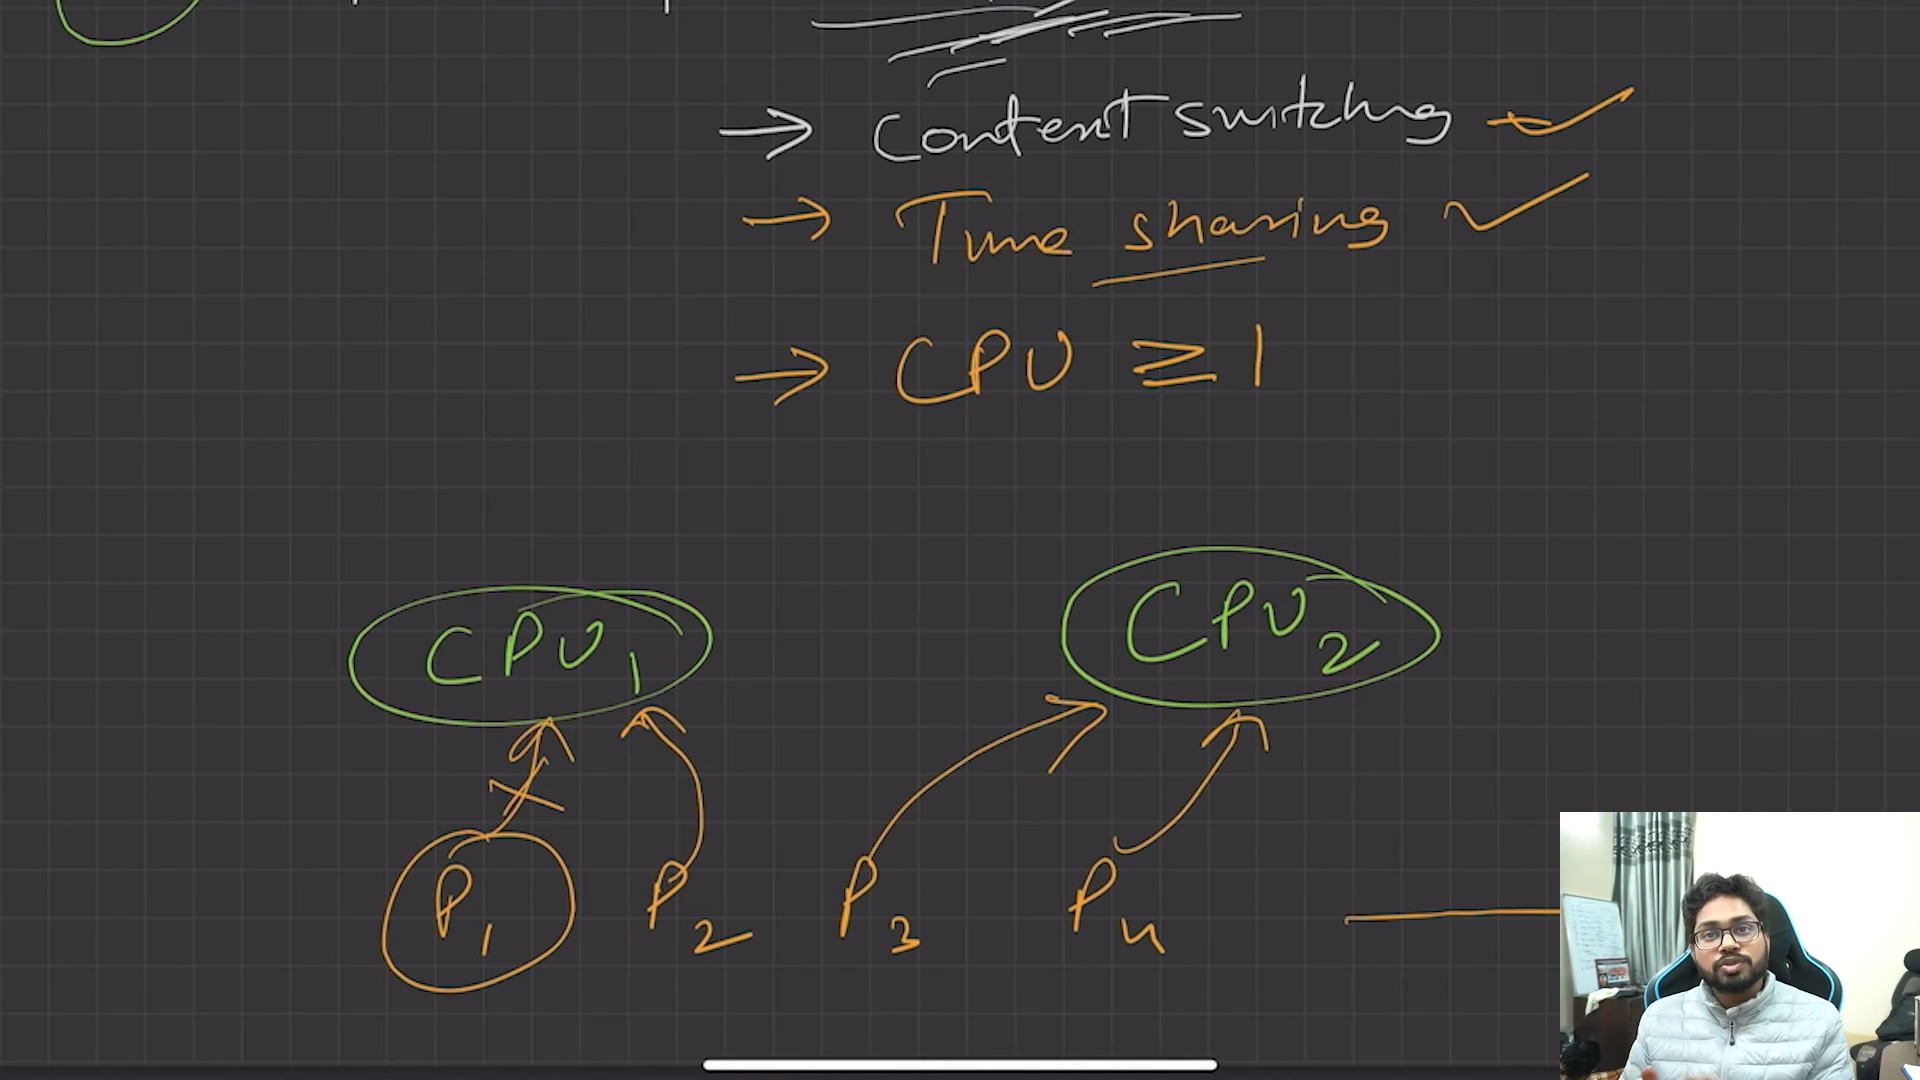 → Context switching
→ Time sharing
→ CPU ≥ 1
CPU1 CPU2
P1 P2 P3 P4